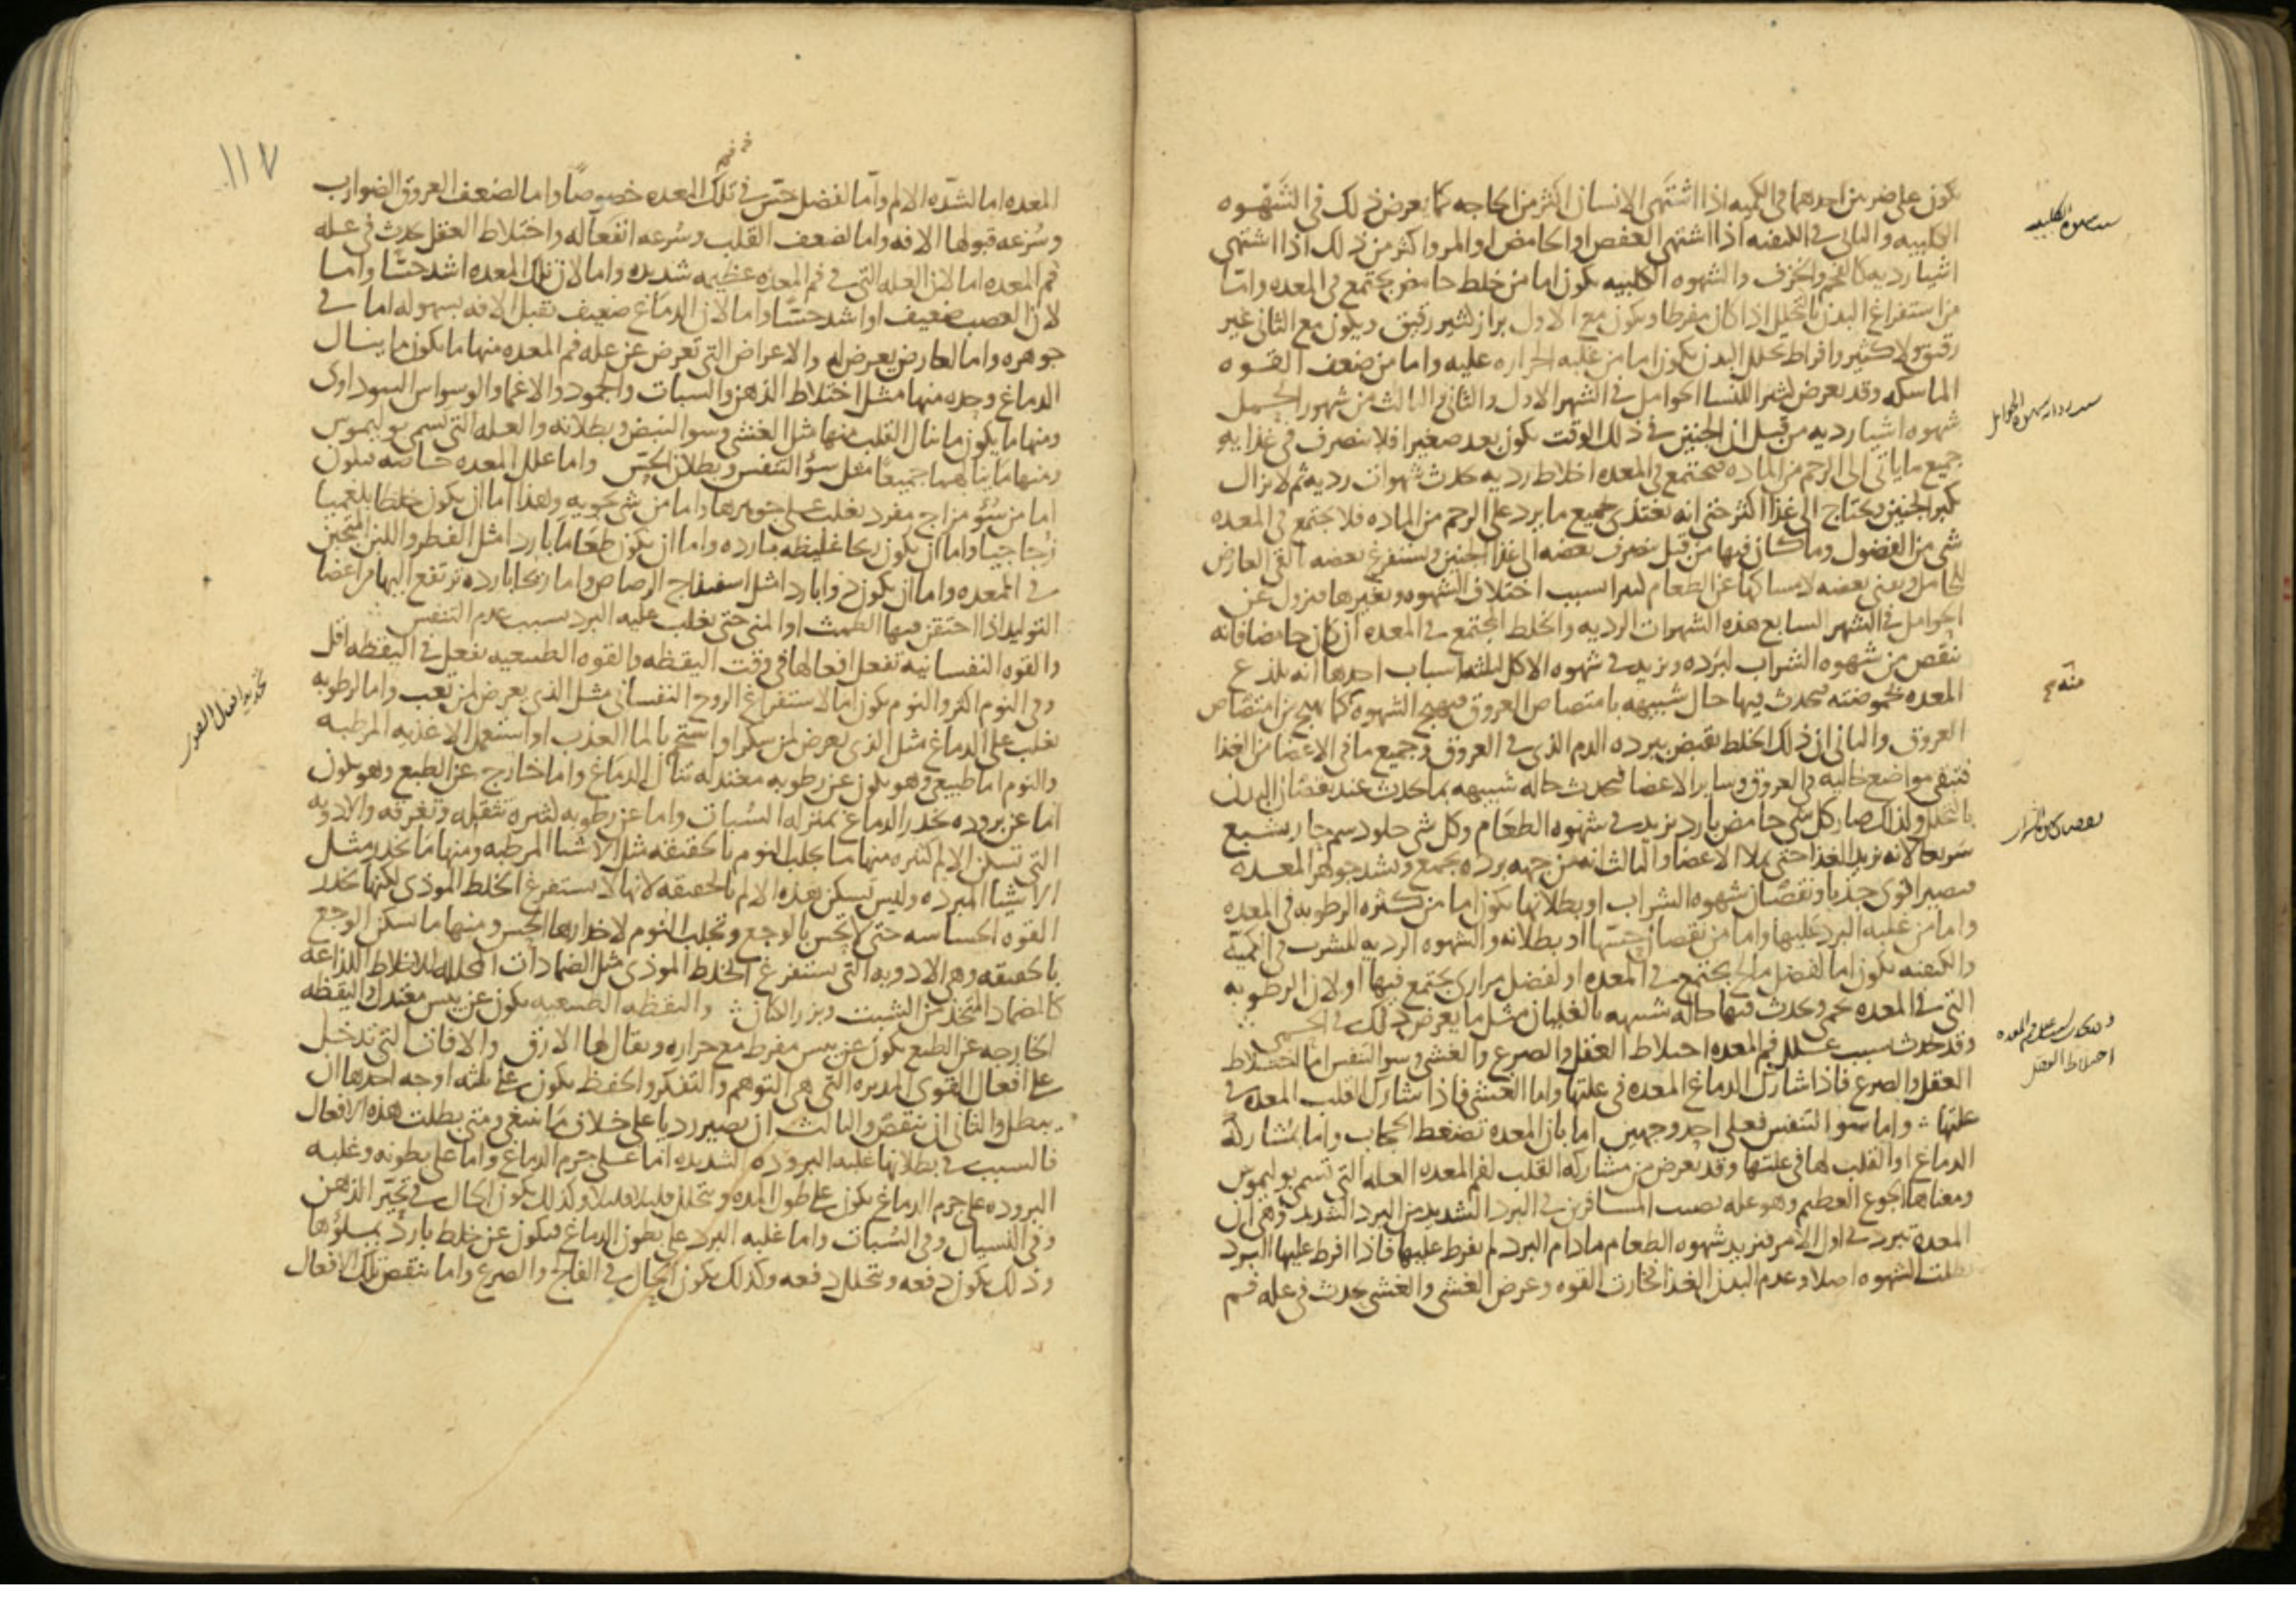 يكون على ضربين احدهما في الكميه اذا اشتهى الانسان اكثر من الحاجه كما يعرض ذلك في الشهوه
الكلبيه والثاني في الكيفيه اذا اشتهى العفص او الحامض او المر واكثر من ذلك اذا اشتهى
اشيا رديه كالفحم والخزف والشهوه الكلبيه يكون اما من خلط حامض يجتمع في المعده واما
من استفراغ البدن بالتحلل اذا كان مفرطا ويكون مع الاول براز كثير رقيق ويكون مع الثاني غير
رقيق ولا كثير وافراط تحلل البدن يكون اما من غلبه الحراره عليه واما من ضعف القوه
الماسكه وقد يعرض لبعض النسا الحوامل في الشهر الاول والثاني والثالث من شهور الحمل
شهوه اشيا رديه من قبل ان الجنين في ذلك الوقت يكون بعد صغيرا فلا ينصرف في غذايه
جميع ما ياتي الى الرحم من الماده فيجتمع في المعده اخلاط رديه تحدث شهوات رديه ثم لا يزال
يكبر الجنين ويحتاج الى غذا اكثر حتى انه يغتذى بجميع ما يرد على الرحم من الماده فلا يجتمع في المعده
شي من الفضول وما كان فيها من قبل ينصرف بعضه الى غذا الجنين ويستفرغ بعضه القي العارض
للحامل ويفنى بعضه لامساكها عن الطعام بسبب اختلاف الشهوه وتغيرها فيزول عن
الحوامل في الشهر السابع هذه الشهوات الرديه والخلط المجتمع في المعده ان كان حامضا فانه
ينقص من شهوه الشراب لبرده ويزيد في شهوه الاكل لثلثه اسباب احدها انه يلذع
المعده بحموضته فيحدث فيها حال شبيهه بامتصاص العروق فيهيج الشهوه كما يهيج من امتصاص
العروق والثاني ان ذلك الخلط يقبض ببرده الدم الذي في العروق وجميع ما في الاعضا من الغذا
فتبقى مواضع خاليه في العروق وساير الاعضا فيحدث حاله شبيهه بما يحدث عند نقصان البدن
بالتحلل ولذلك صار كل شي حامض بارد يزيد في شهوه الطعام وكل شي حلو دسم حار يشبع
سريعا لانه يزيد الغذا حتى يملا الاعضا والثالث انه من جهه برده يجمع ويشد جوهر المعده
فيصير اقوى جذبا ونقصان شهوه الشراب او بطلانها يكون اما من كثره الرطوبه في المعده
واما من غلبه البرد عليها واما من نقصان حسها او بطلانه والشهوه الرديه للشرب في الكميه
والكيفيه يكون اما لفضل مالح يجتمع في المعده او لفضل مرارى يجتمع فيها او لان الرطوبه
التي في المعده تحمى وتحدث فيها حاله شبيهه بالغليان مثل ما يعرض ذلك في الحمى
وقد تحدث بسبب علل فم المعده اختلاط العقل والصرع والغشي وسو التنفس اما اختلاط
العقل والصرع فاذا شارك الدماغ المعده في علتها واما الغشي فاذا شارك القلب المعده في
علتها واما سو التنفس فعلى احد وجهين اما بان المعده تضغط الحجاب واما بمشاركه
الدماغ او القلب لها في علتها وقد يعرض من مشاركه القلب لفم المعده العله التي تسمى بوليموس
ومعناها الجوع العظيم وهو عله تصيب المسافرين في البرد الشديد من البرد الشديد وهي ان
المعده تبرد في اول الامر فتزيد شهوه الطعام ما دام البرد لم يفرط عليها فاذا افرط عليها البرد
بطلت الشهوه اصلا وعدم البدن الغذا فخارت القوه وعرض الغشي والغشي يحدث في عله فم
منه
اختلاط العقل
١١٧
المعده اما لشده الالم واما لفضل حس في تلك المعده خصوصا واما لضعف العروق الضوارب
وسرعه قبولها الافه واما لضعف القلب وسرعه انفعاله واختلاط العقل يحدث في عله
فم المعده اما لان العله التي في فم المعده عظيمه شديده واما لان تلك المعده اشد حسا واما
لان العصب ضعيف او اشد حسا واما لان الدماغ ضعيف يقبل الافه بسهوله اما في
جوهره واما لعارض يعرض له والاعراض التي تعرض عن عله فم المعده منها ما يكون مما ينال
الدماغ وحده منها مثل اختلاط الذهن والسبات والجمود والاغما والوسواس السوداوى
ومنها ما يكون مما ينال القلب منها مثل الغشي وسو النبض وبطلانه والعله التي تسمى بوليموس
ومنها ما ينالهما جميعا مثل سوء التنفس وبطلان الحس واما علل المعده خاصه فتكون
اما من سوء مزاج مفرد يغلب على جوهرها واما من شي تحويه وهذا اما ان يكون خلطا بلغميا
زجاجيا واما ان يكون ريحا غليظه بارده واما ان يكون طعاما باردا مثل الفطر واللبن المتجبن
في المعده واما ان يكون دوا باردا مثل اسفيداج الرصاص واما ريحا بارده ترتفع اليها من اعضا
التوليد اذا احتقن فيها الطمث او المنى حتى يغلب عليه البرد بسبب عدم التنفس
والقوه النفسانيه تفعل افعالها في وقت اليقظه والقوه الطبيعيه تفعل في اليقظه اقل
وفي النوم اكثر والنوم يكون اما لاستفراغ الروح النفساني مثل الذي يعرض لمن تعب واما لرطوبه
تغلب على الدماغ مثل الذي يعرض لمن سكر او استحم بالما العذب او استعمل الاغذيه المرطبه
والنوم اما طبيعي وهو يكون عن رطوبه معتدله تنال الدماغ واما خارج عن الطبع وهو يكون
اما عن بروده تخدر الدماغ بمنزله السبات واما عن رطوبه كثيره تثقله وتغرقه والادويه
التي تسكن الالم كثيره منها ما يجلب النوم بالحقيقه مثل الاشيا المرطبه ومنها ما يخدر مثل
الاشيا المبرده وليس تسكن هذه الالم بالحقيقه لانها لا تستفرغ الخلط الموذى لكنها تخدر
القوه الحساسه حتى لا تحس بالوجع وتجلب النوم لاخدارها الحس ومنها ما يسكن الوجع
بالحقيقه وهي الادويه التي تستفرغ الخلط الموذى مثل الضمادات المحلله للاخلاط اللذاعه
كالضماد المتخذ من الشبت وبزر الكتان واليقظه الطبيعيه يكون عن يبس معتدل واليقظه
الخارجه عن الطبع يكون عن يبس مفرط مع حراره ويقال لها الارق والافات التي تدخل
على افعال القوى المدبره التي هي التوهم والتفكر والحفظ يكون على ثلثه اوجه احدها ان
يبطل والثاني ان ينقص والثالث ان يصير رديا على خلاف ما ينبغي ومتى بطلت هذه الافعال
فالسبب في بطلانها غلبه البروده الشديده اما على جرم الدماغ واما على بطونه وغلبه
البروده على جرم الدماغ يكون على طول المده ويتحلل قليلا قليلا وكذلك يكون الحال في تحير الذهن
وفي النسيان وفي السبات واما غلبه البرد على بطون الدماغ فيكون عن خلط بارد يملؤها
وذلك يكون دفعه ويتحلل دفعه وكذلك يكون الحال في الفالج والصرع واما ينقص تلك الافعال